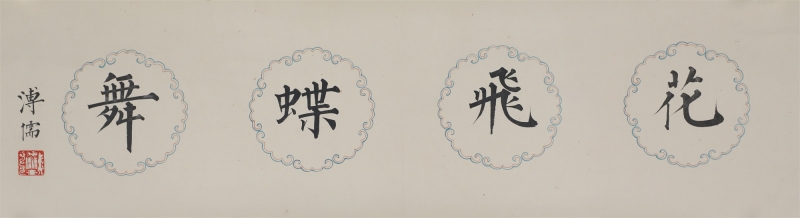 花飛蝶舞
溥儒